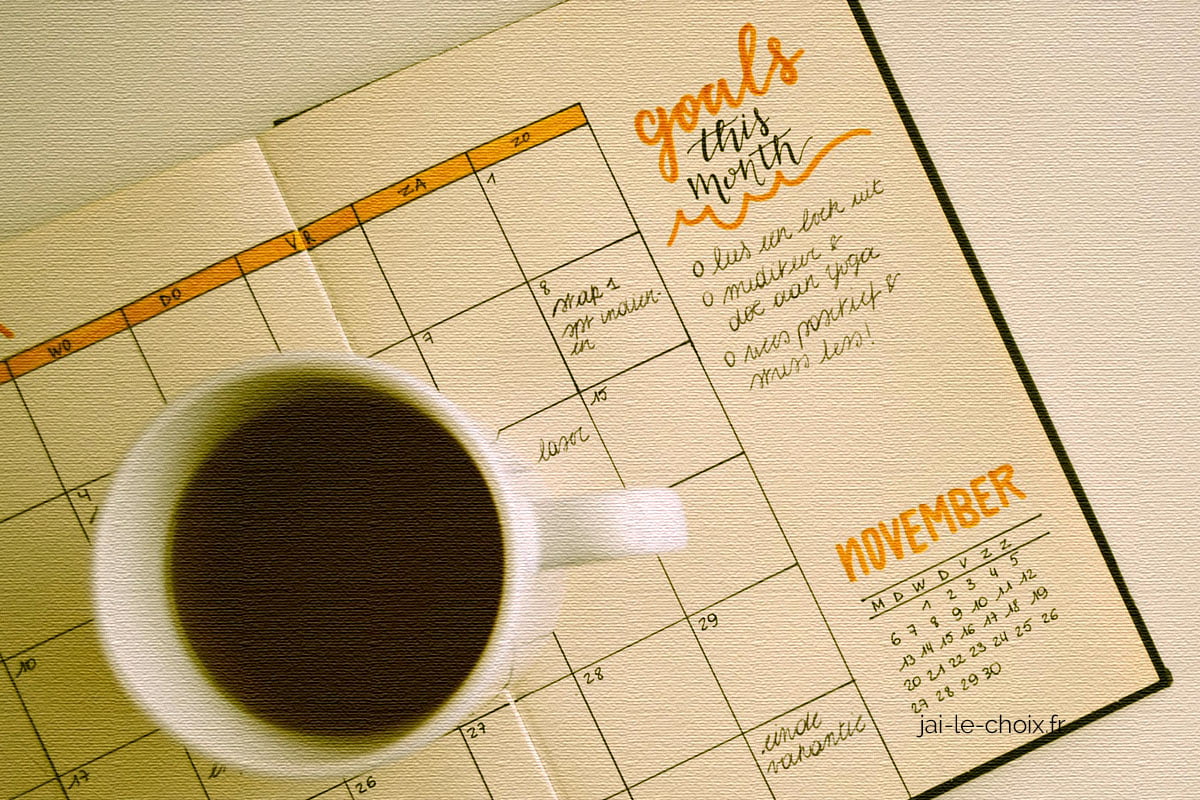 goals
this
month
o lees een boek uit
o mediteer &
doe aan yoga
o wees positief &
stress less!
WO DO VR ZA ZO
1
7 8
stap 1
in
15
laser
4
10
29
28
27
17
26
einde
vakantie
NOVEMBER
M D W D V Z Z
1 2 3 4 5
6 7 8 9 10 11 12
13 14 15 16 17 18 19
20 21 22 23 24 25 26
27 28 29 30
jai-le-choix.fr